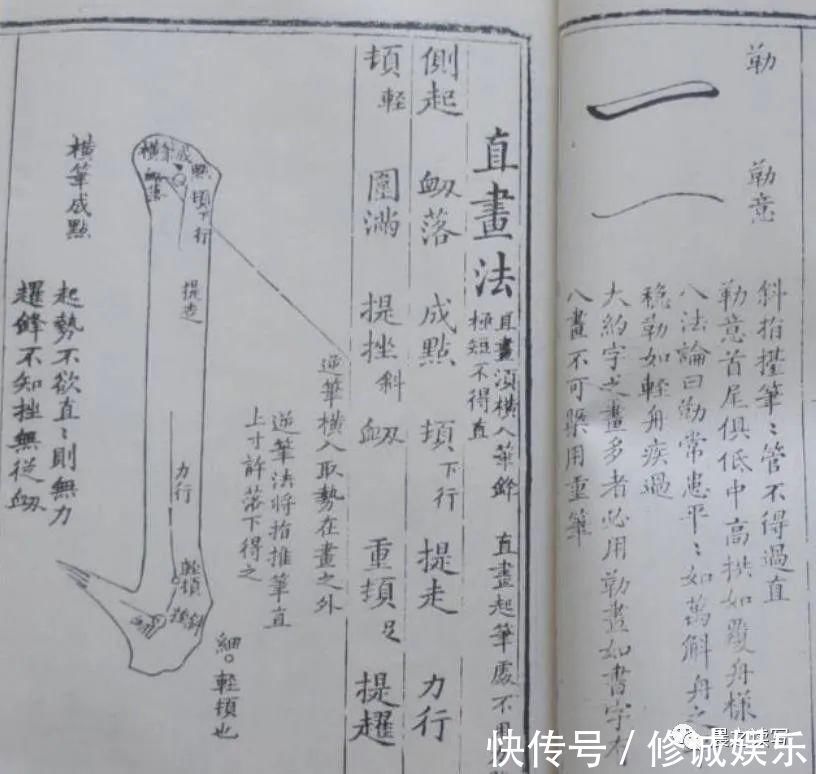 勒
勒意
斜指捝筆〻管不得過直
勒意首尾俱低中高拱如覆舟樣
八法論曰勒常患平〻如萬斛舟之
穩勒如輕舟疾過
大約字之畫多者必用勒畫如書字
八畫不可槩用重筆
直畫法
直畫須橫入筆鋒 直畫起筆處不
極短不得直
側起 衂落 成點 頓下行 提走 力行
頓輕 圓滿 提挫斜衂 重頓足 提趯
逆筆橫入取勢在畫之外
逆筆法將指推筆直
上寸許落下得之
橫筆成點
衂落
頓下行
提走
力行
輕頓
挫斜
細。輕頓也
橫筆成點
起勢不欲直〻則無力
趯鋒不知挫無從衂
快传号／修诚娱乐